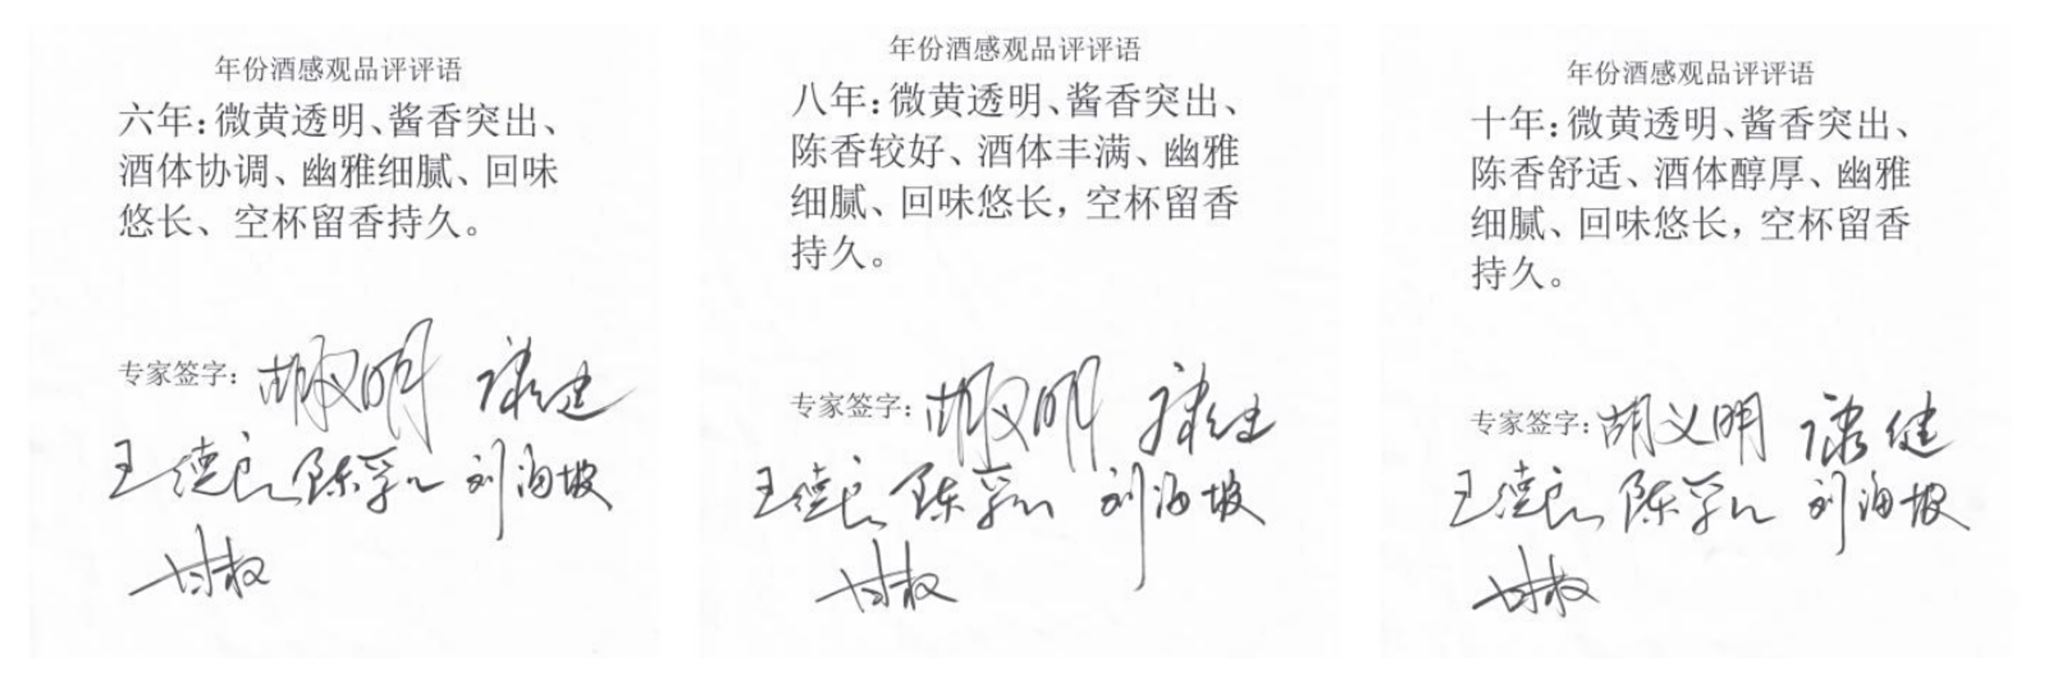 年份酒感观品评评语
六年：微黄透明、酱香突出、
酒体协调、幽雅细腻、回味
悠长、空杯留香持久。
专家签字：胡义明 谭健
王德良 陈孚江 刘海坡
甘权
年份酒感观品评评语
八年：微黄透明、酱香突出、
陈香较好、酒体丰满、幽雅
细腻、回味悠长，空杯留香
持久。
专家签字：胡义明
王德良 刘海坡
年份酒感观品评评语
十年：微黄透明、酱香突出、
陈香舒适、酒体醇厚、幽雅
细腻、回味悠长，空杯留香
持久。
专家签字：胡义明
王德良 刘海坡